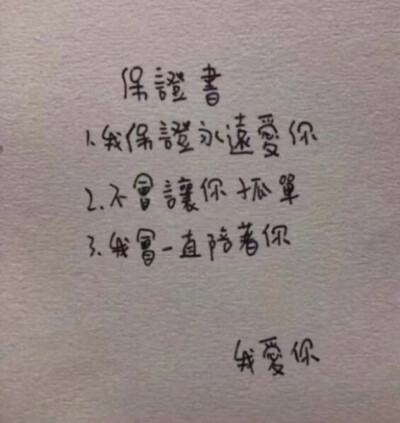 保證書
1.我保證永遠愛你
2.不會讓你孤單
3.我會一直陪著你
我愛你